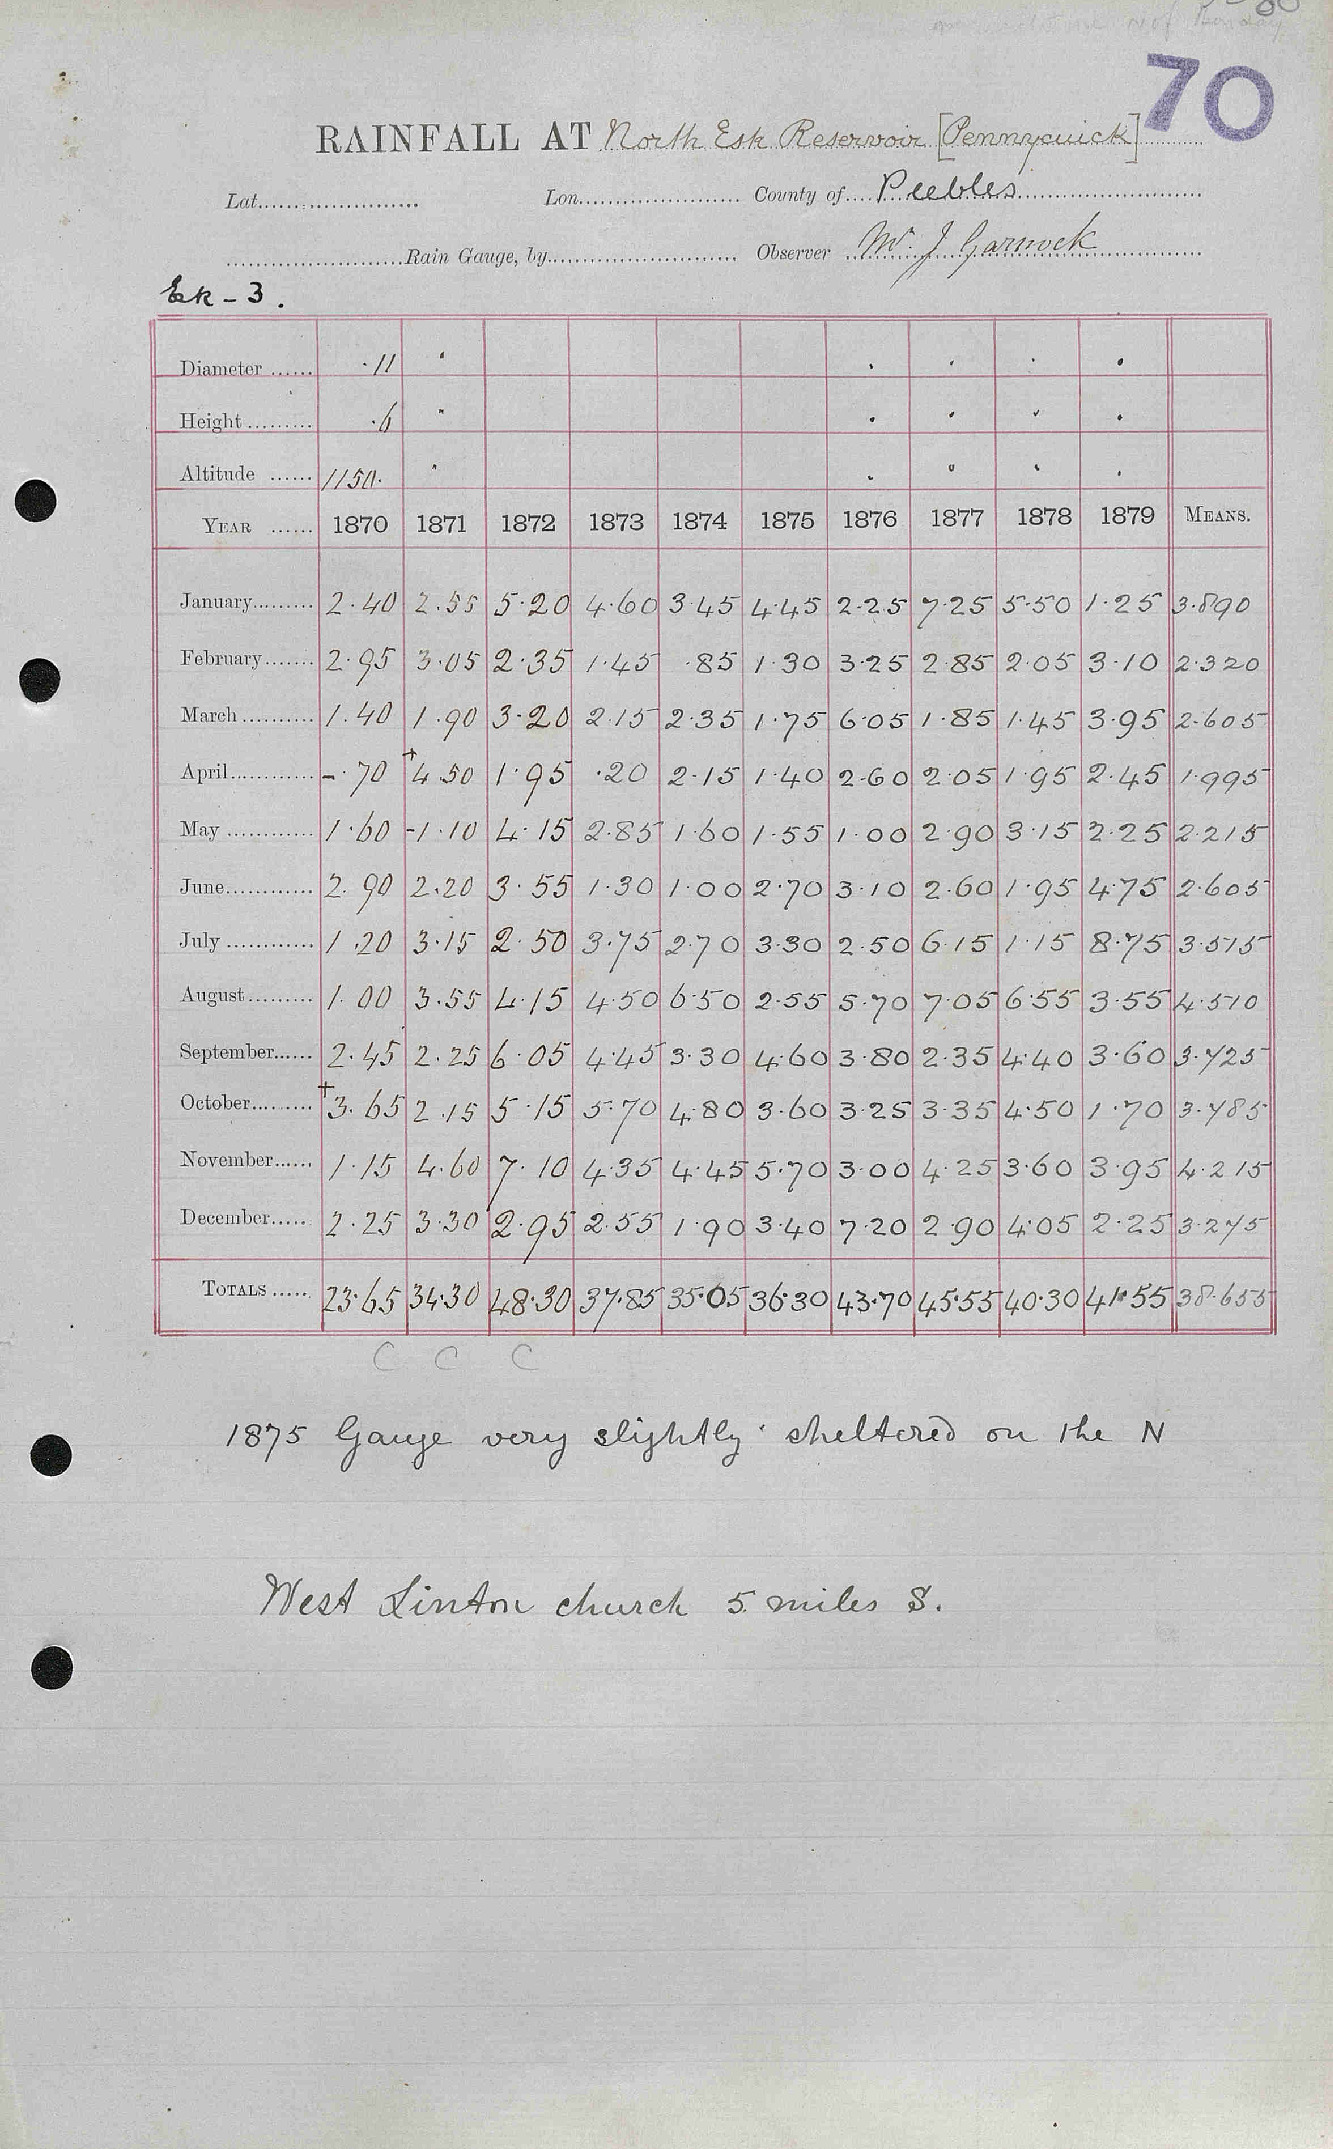 70
RAINFALL AT North Esk Reservoir [Pennycuick]
Lat. Lon. County of Peebles
Rain Gauge, by Observer W. J. Garnock
Ek - 3.
Diameter ...... ·11
Height ......... ·6
Altitude ...... 1150.
YEAR ...... 1870 1871 1872 1873 1874 1875 1876 1877 1878 1879 MEANS.
January......... 2.40 2.55 5.20 4.60 3.45 4.45 2.25 7.25 5.50 1.25 3.890
February....... 2.95 3.05 2.35 1.45 .85 1.30 3.25 2.85 2.05 3.10 2.320
March .......... 1.40 1.90 3.20 2.15 2.35 1.75 6.05 1.85 1.45 3.95 2.605
April............ -.70 +4.50 1.95 .20 2.15 1.40 2.60 2.05 1.95 2.45 1.995
May ............ 1.60 -1.10 4.15 2.85 1.60 1.55 1.00 2.90 3.15 2.25 2.215
June............ 2.90 2.20 3.55 1.30 1.00 2.70 3.10 2.60 1.95 4.75 2.605
July ............ 1.20 3.15 2.50 3.75 2.70 3.30 2.50 6.15 1.15 8.75 3.515
August......... 1.00 3.55 4.15 4.50 6.50 2.55 5.70 7.05 6.55 3.55 4.510
September...... 2.45 2.25 6.05 4.45 3.30 4.60 3.80 2.35 4.40 3.60 3.725
October......... +3.65 2.15 5.15 5.70 4.80 3.60 3.25 3.35 4.50 1.70 3.785
November...... 1.15 4.60 7.10 4.35 4.45 5.70 3.00 4.25 3.60 3.95 4.215
December..... 2.25 3.30 2.95 2.55 1.90 3.40 7.20 2.90 4.05 2.25 3.275
TOTALS ..... 23.65 34.30 48.30 37.85 35.05 36.30 43.70 45.55 40.30 41.55 38.655
C C C
1875 Gauge very slightly sheltered on the N
West Linton church 5 miles S.